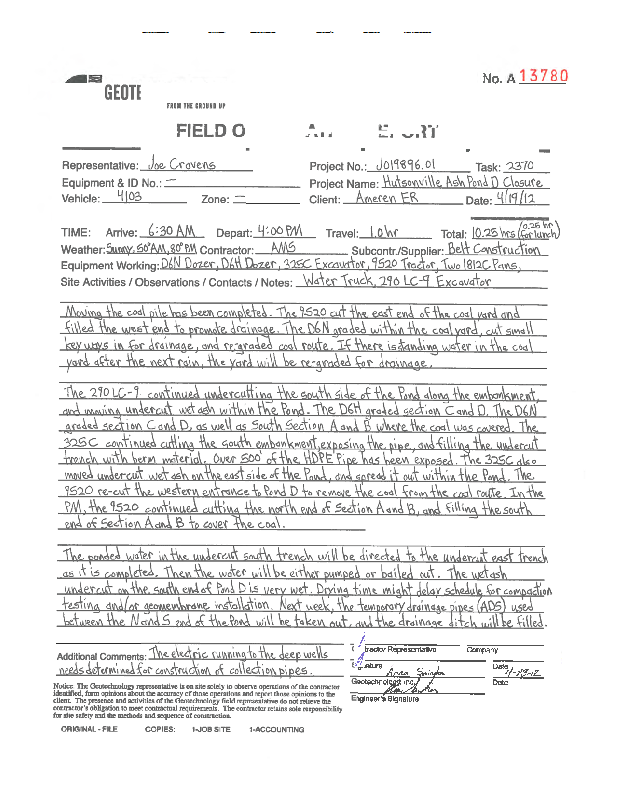 No. A 13780
GEOTE
FROM THE GROUND UP
FIELD O
Representative: Joe Cravens Project No.: J019896.01 Task: 2370
Equipment & ID No.: — Project Name: Hutsonville Ash Pond D Closure
Vehicle: 4103 Zone: — Client: Ameren ER Date: 4/19/12
TIME: Arrive: 6:30 AM Depart: 4:00 PM Travel: 1.0 hr Total: 10.25 hrs (0.25 hr for lunch)
Weather: Sunny, 50° AM, 80° PM Contractor: AMS Subcontr./Supplier: Belt Construction
Equipment Working: D6N Dozer, D6H Dozer, 325C Excavator, 9520 Tractor, Two 1812C Pans,
Site Activities / Observations / Contacts / Notes: Water Truck, 290 LC-9 Excavator
Moving the coal pile has been completed. The 9520 cut the east end of the coal yard and
filled the west end to promote drainage. The D6N graded within the coal yard, cut small
key ways in for drainage, and re-graded coal route. If there is standing water in the coal
yard after the next rain, the yard will be re-graded for drainage.
The 290 LC-9 continued undercutting the south side of the Pond along the embankment,
and moving undercut wet ash within the Pond. The D6H graded section C and D. The D6N
graded section C and D, as well as South Section A and B where the coal was covered. The
325C continued cutting the south embankment, exposing the pipe, and filling the undercut
trench with berm material. Over 500' of the HDPE Pipe has been exposed. The 325C also
moved undercut wet ash on the east side of the Pond, and spread it out within the Pond. The
9520 re-cut the western entrance to Pond D to remove the coal from the coal route. In the
PM, the 9520 continued cutting the north end of Section A and B, and filling the south
end of Section A and B to cover the coal.
The ponded water in the undercut south trench will be directed to the undercut east trench
as it is completed. Then the water will be either pumped or bailed out. The wet ash
undercut on the south end of Pond D is very wet. Drying time might delay schedule for compaction
testing and/or geomembrane installation. Next week, the temporary drainage pipes (ADS) used
between the N and S end of the Pond will be taken out, and the drainage ditch will be filled.
Additional Comments: The electric running to the deep wells
needs determined for construction of collection pipes.
tractor Representative Company
gnature Date
Geotechnology Inc.
Date
Engineer's Signature
Notice: The Geotechnology representative is on site solely to observe operations of the contractor
identified, form opinions about the accuracy of those operations and report those opinions to the
client. The presence and activities of the Geotechnology field representative do not relieve the
contractor's obligation to meet contractual requirements. The contractor retains sole responsibility
for site safety and the methods and sequence of construction.
ORIGINAL - FILE COPIES: 1-JOB SITE 1-ACCOUNTING